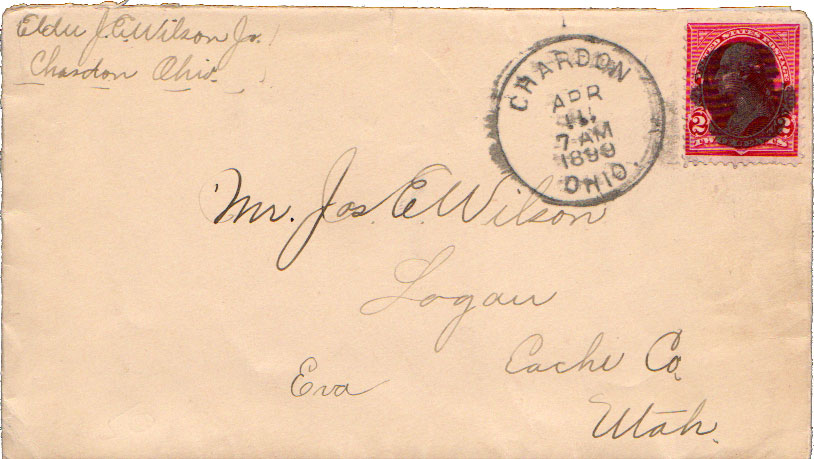 Elder J. E. Wilson Jr.
Chardon Ohio.
CHARDON
APR
7-AM
1899
OHIO.
UNITED STATES POSTAGE
2 2
Mr. Jos. E. Wilson
Logan
Cache Co.
Eva
Utah.